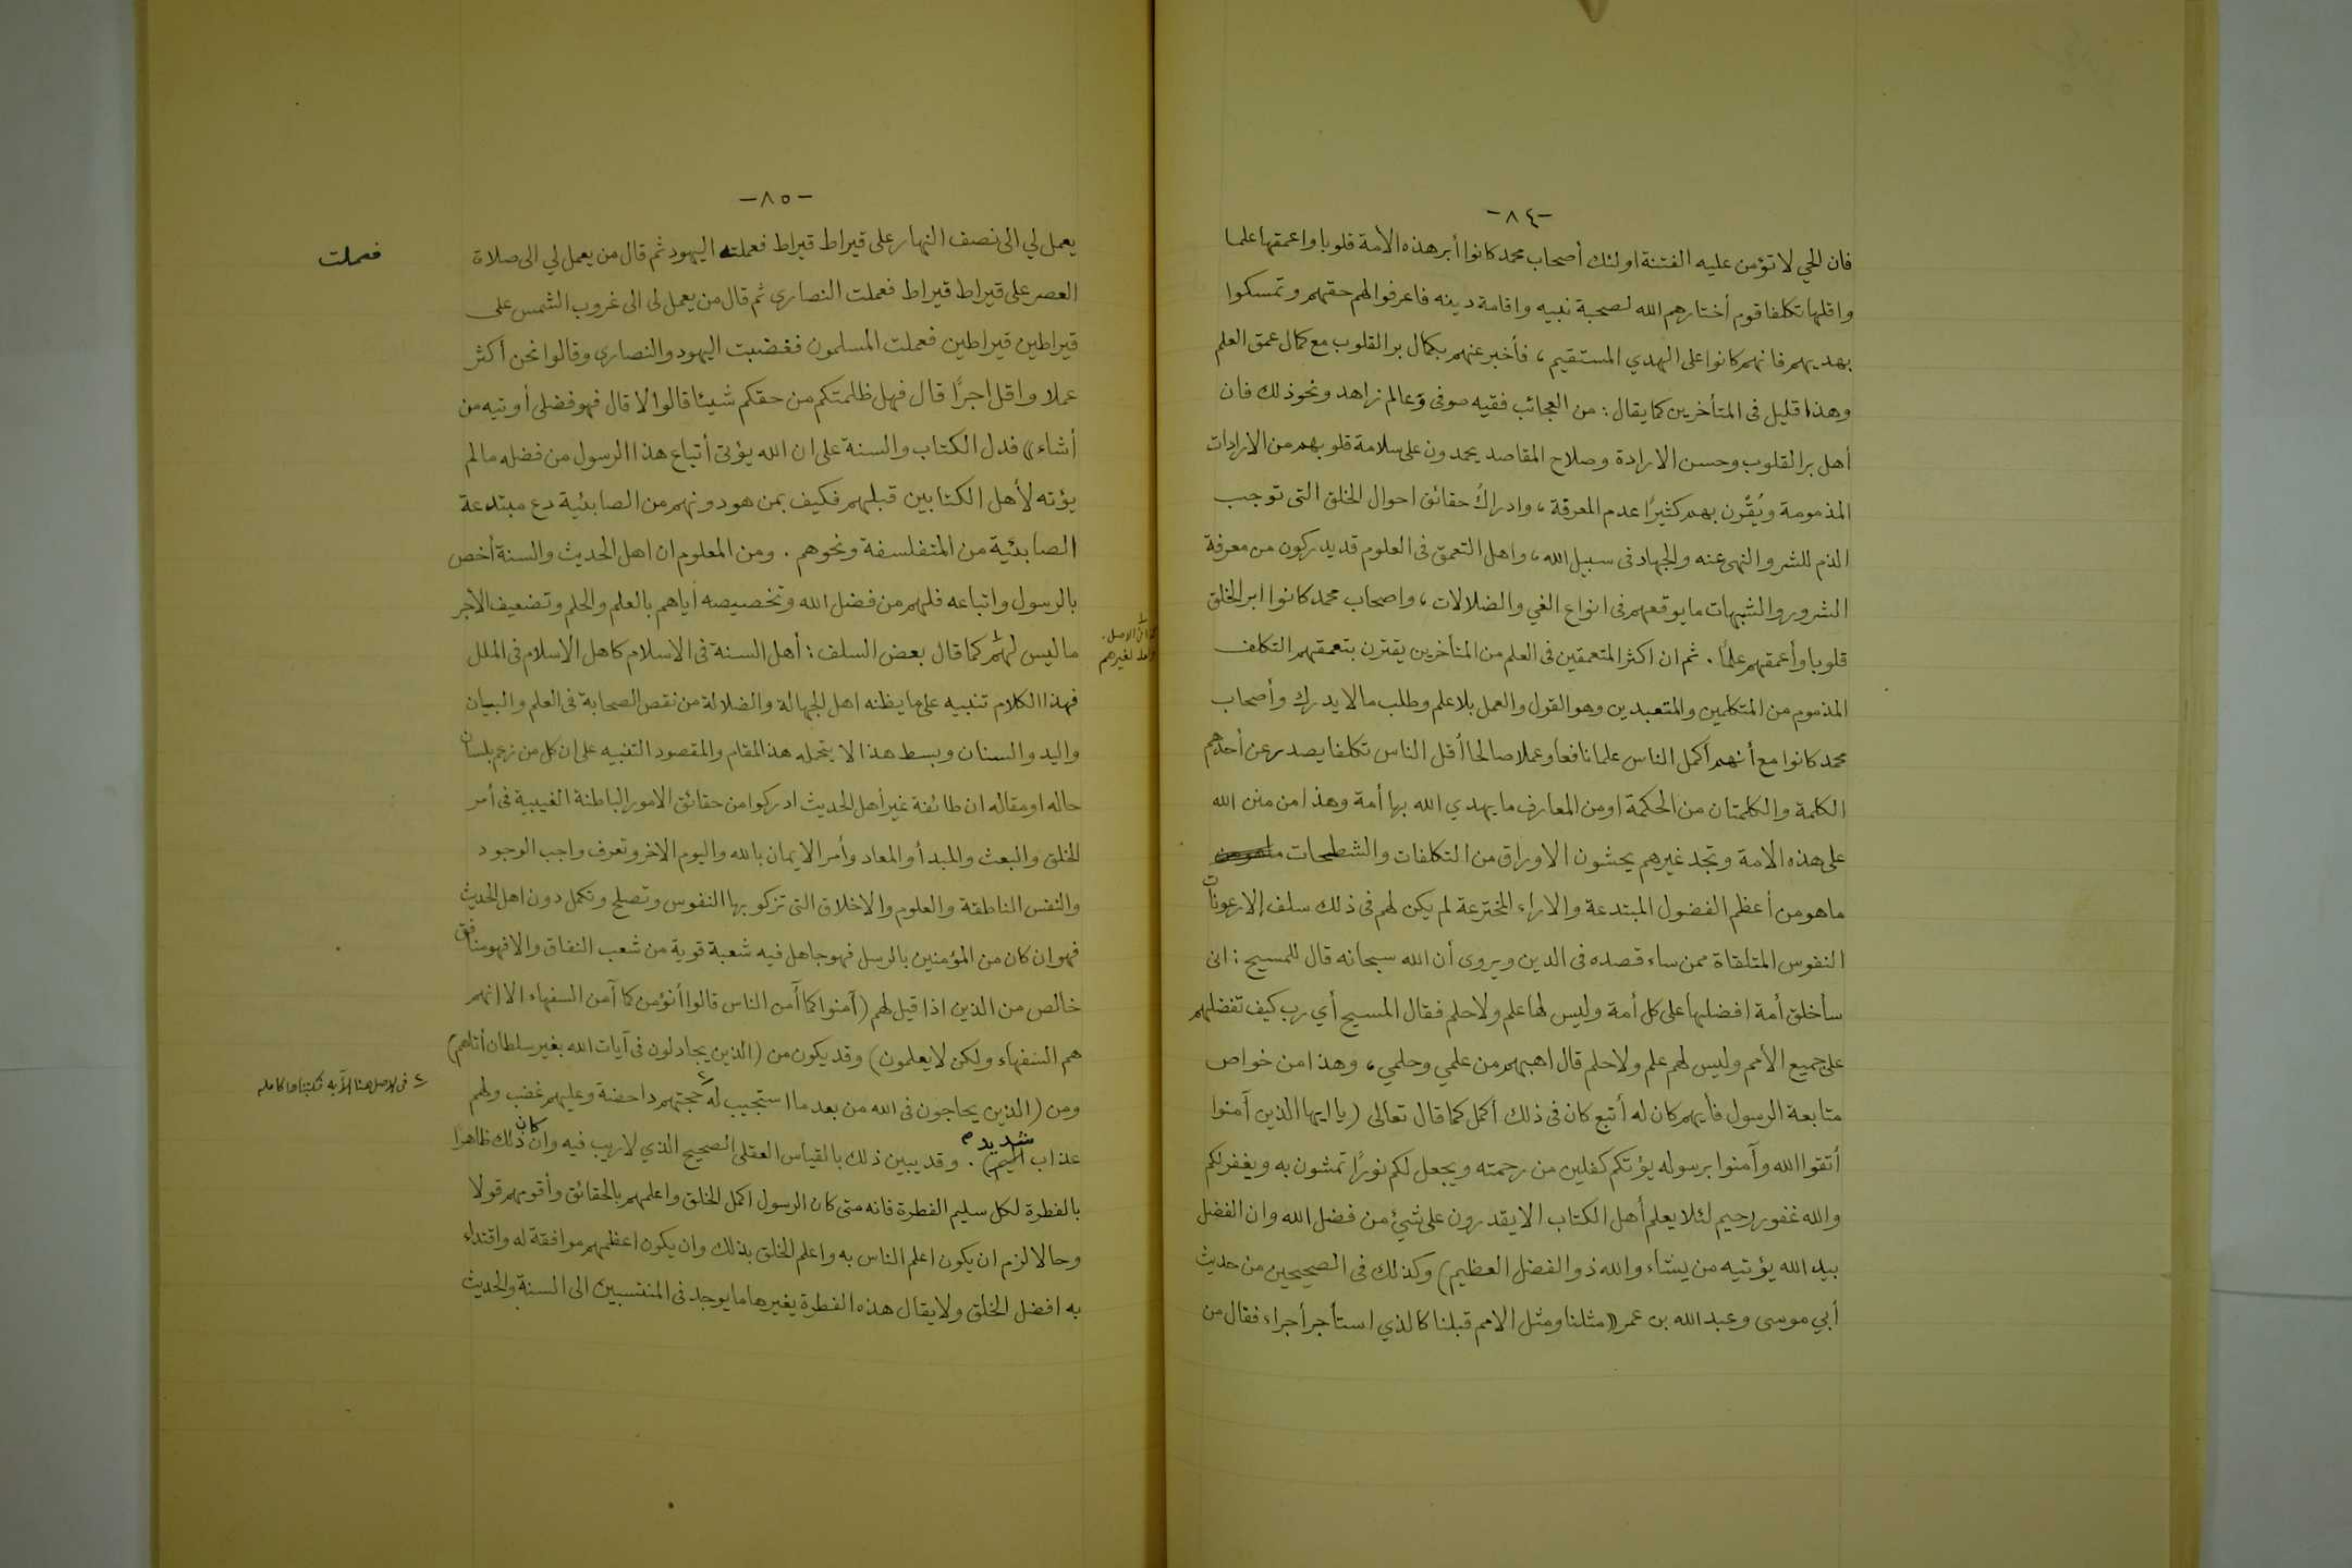 -٨٤-
فان الحي لا تؤمن عليه الفتنة اولئك أصحاب محمد كانوا أبر هذه الأمة قلوبا واعمقها علما
واقلها تكلفا قوم أختارهم الله لصحبة نبيه واقامة دينه فاعرفوا لهم حقهم وتمسكوا
بهديهم فانهم كانوا على الهدي المستقيم ، فأخبر عنهم بكمال بر القلوب مع كمال عمق العلم
وهذا قليل فى المتأخرين كما يقال : من العجائب فقيه صوفى وعالم زاهد ونحو ذلك فان
أهل بر القلوب وحسن الارادة وصلاح المقاصد يحمدون على سلامة قلوبهم من الارادات
المذمومة ويُقّرن بهم كثيرًا عدم المعرفة ، وادراكُ حقائق احوال الخلق التى توجب
الذم للشر والنهى عنه والجهاد فى سبيل الله ، واهل التعمق فى العلوم قد يدركون من معرفة
الشرور والشبهات ما يوقعهم فى انواع الغي والضلالات ، واصحاب محمد كانوا ابر الخلق
قلوبا وأعمقهم علمًا . ثم ان اكثر المتعمقين فى العلم من المتأخرين يقترن بتعمقهم التكلف
المذموم من المتكلمين والمتعبدين وهو القول والعمل بلا علم وطلب مالا يدرك وأصحاب
محمد كانوا مع أنهم أكمل الناس علما نافعا وعملا صالحا أقل الناس تكلفا يصدر عن أحدهم
الكلمة والكلمتان من الحكمة اومن المعارف ما يهدي الله بها أمة وهذا من منن الله
على هذه الامة وتجد غيرهم يحشون الاوراق من التكلفات والشطحات
ماهو من أعظم الفضول المبتدعة والاراء المخترعة لم يكن لهم فى ذلك سلف إلا رعونات
النفوس المتلقاة ممن ساء قصده فى الدين ويروى أن الله سبحانه قال للمسيح : انى
سأخلق أمة افضلها على كل أمة وليس لها علم ولا حلم فقال المسيح أي رب كيف تفضلهم
على جميع الأمم وليس لهم علم ولا حلم قال اهبهم من علمي وحلمي ، وهذا من خواص
متابعة الرسول فأيهم كان له أتبع كان فى ذلك أكمل كما قال تعالى ( يا ايها الذين آمنوا
أتقوا الله وآمنوا برسوله يؤتكم كفلين من رحمته ويجعل لكم نورًا تمشون به ويغفر لكم
والله غفور رحيم لئلا يعلم أهل الكتاب الا يقدرون على شيئ من فضل الله وان الفضل
بيد الله يؤتيه من يشاء والله ذوالفضل العظيم ) وكذلك فى الصحيحين من حديث
أبي موسى وعبد الله بن عمر « مثلنا ومثل الامم قبلنا كالذي استأجر أجراء فقال من
-٨٥-
يعمل لي الى نصف النهار على قيراط قيراط فعملته اليهود ثم قال من يعمل لي الى صلاة
فعملت
العصر على قيراط قيراط فعملت النصارى ثم قال من يعمل لى الى غروب الشمس على
قيراطين قيراطين فعملت المسلمون فغضبت اليهود والنصارى وقالوا نحن أكثر
عملا واقل اجرًا قال فهل ظلمتكم من حقكم شيئا قالوا لا قال فهو فضلى أوتيه من
أشاء » فدل الكتاب والسنة على ان الله يؤتى أتباع هذا الرسول من فضله مالم
يؤته لأهل الكتابين قبلهم فكيف بمن هو دونهم من الصابئية دع مبتدعة
الصابئية من المتفلسفة ونحوهم . ومن المعلوم ان اهل الحديث والسنة أخص
بالرسول واتباعه فلهم من فضل الله وتخصيصه أياهم بالعلم والحلم وتضعيف الأجر
ما ليس لهم كما قال بعض السلف : أهل السنة فى الاسلام كاهل الأسلام فى الملل
الاصل
لغيرهم
فهذا الكلام تنبيه على ما يظنه اهل الجهالة والضلالة من نقص الصحابة فى العلم والبيان
واليد والسنان وبسط هذا لا يتحمله هذ المقام والمقصود التنبيه على ان كل من زعم بلسان
حاله او مقاله ان طائفة غير أهل الحديث ادركوا من حقائق الامور الباطنة الغيبية فى أمر
الخلق والبعث والمبدأ والمعاد وأمر الايمان بالله واليوم الاخر وتعرف واجب الوجود
والنفس الناطقة والعلوم والاخلاق التى تزكو بها النفوس وتصلح وتكمل دون اهل الحديث
فهو ان كان من المؤمنين بالرسل فهو جاهل فيه شعبة قوية من شعب النفاق والا فهو منافق
خالص من الذين اذا قيل لهم ( آمنوا كما آمن الناس قالوا أنؤمن كما آمن السفهاء الا انهم
هم السفهاء ولكن لا يعلمون ) وقد يكون من ( الذين يجادلون فى آيات الله بغير سلطان أتاهم )
ومن ( الذين يحاجون فى الله من بعد ما استجيب له حجتهم داحضة وعليهم غضب ولهم
فى الاصل هنا الآيه فكتبناها كامله
عذاب اليم ) . وقد يبين ذلك بالقياس العقلى الصحيح الذي لا ريب فيه وان كان ذلك ظاهرًا
شديد م
بالفطرة لكل سليم الفطرة فانه متى كان الرسول اكمل الخلق واعلمهم بالحقائق وأقومهم قولا
وحالا لزم ان يكون اعلم الناس به واعلم الخلق بذلك وان يكون اعظمهم موافقة له واقتداء
به افضل الخلق ولا يقال هذه الفطرة يغيرها ما يوجد فى المنتسبين الى السنة والحديث